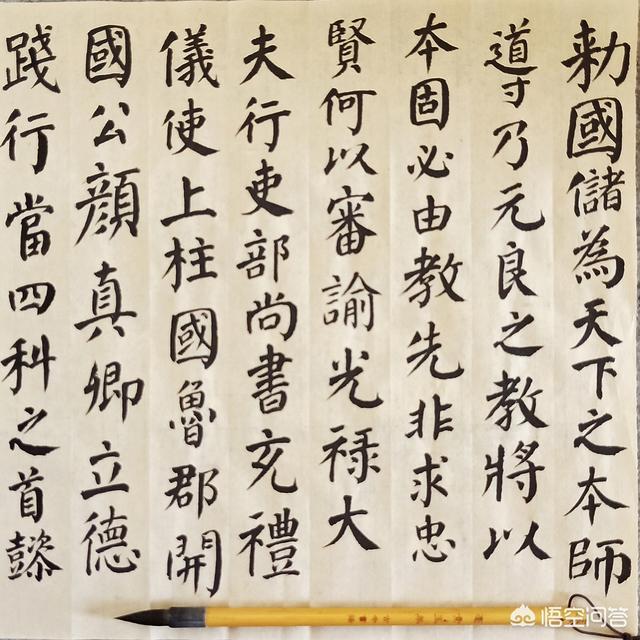 勅國儲為天下之本師
導乃元良之教將以
本固必由教先非求忠
賢何以審諭光禄大
夫行吏部尚書充禮
儀使上柱國魯郡開
國公顔真卿立德
踐行當四科之首懿
悟空问答